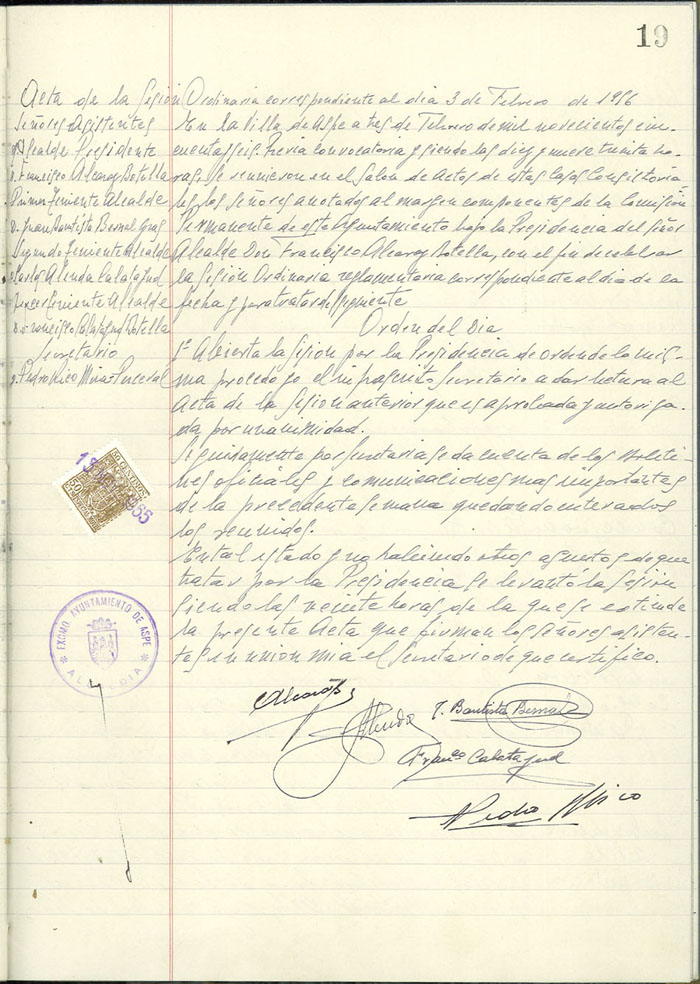 19
Acta de la Sesión Ordinaria correspondiente al dia 3 de Febrero de 1956
Señores Asistentes
Alcalde Presidente
D. Francisco Alcaraz Botella
Primer Teniente Alcalde
D. Juan Bautista Bernal
Segundo Teniente Alcalde
Carlos Alenda Calatayud
Tercer Teniente Alcalde
D. Francisco Calatayud Botella
Secretario
D. Pedro Rico
En la Villa de Aspe a tres de Febrero de mil novecientos cin-
cuenta y seis. Previa convocatoria y siendo las diez y nueve treinta ho-
ras se reunieron en el Salon de Actos de estas Casas Consistoria
les los señores anotados al margen componentes de la Comisión
Permanente de este Ayuntamiento bajo la Presidencia del Señor
Alcalde Don Francisco Alcaraz Botella, con el fin de celebrar
la Sesión Ordinaria reglamentaria correspondiente al dia de la
fecha y para tratar del siguiente
Orden del Dia
1º Abierta la Sesión por la Presidencia de orden de la mis-
ma procedo yo el infrascrito Secretario a dar lectura al
Acta de la Sesión anterior que es aprobada y autoriza
da por unanimidad.
Seguidamente por Secretaria se da cuenta de los Boleti-
nes oficiales y comunicaciones mas importantes
de la precedente semana quedando enterados
los reunidos.
En tal estado y no habiendo otros asuntos de que
tratar por la Presidencia se levantó la Sesión
siendo las veinte horas de la que se extiende
la presente Acta que firman los señores asisten-
tes en union mia el Secretario de que certifico.
50 CENTIMOS
1955
EXCMO AYUNTAMIENTO DE ASPE
ALCALDIA
Alcaraz
Alenda
J. Bautista Bernal
Franco Calatayud
Pedro Rico